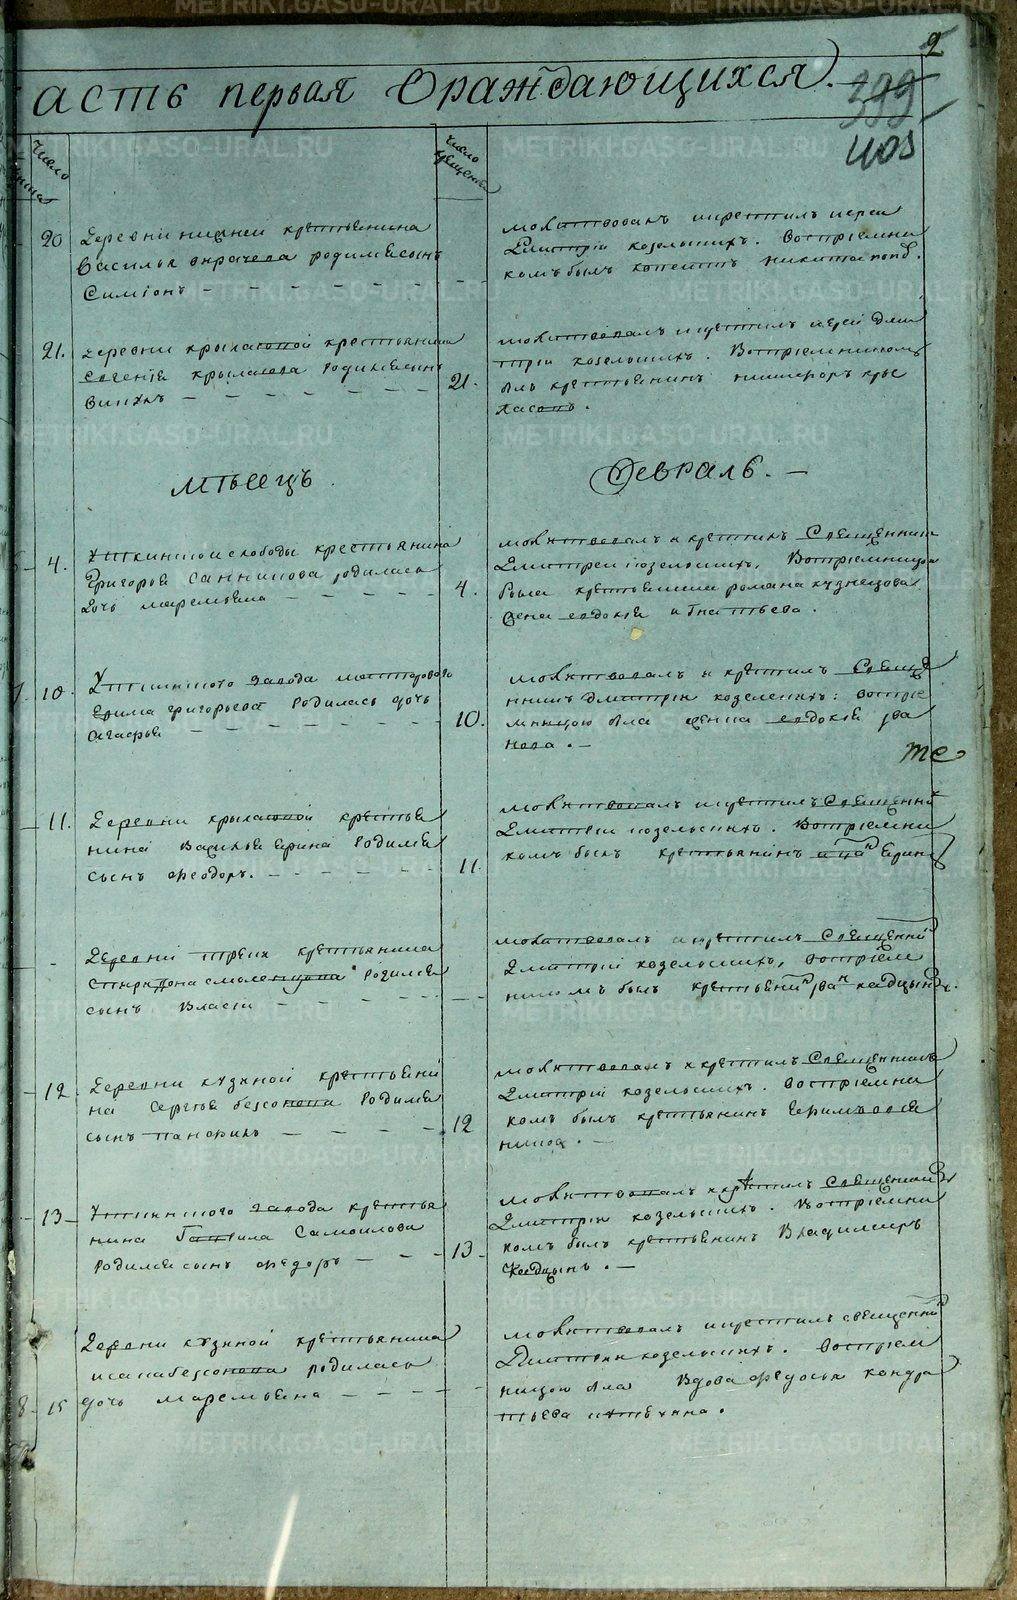 2
асть первая ораждающихся.
399
403
Число
Число крещения
20
Деревни нижней крестьянина
Василья родился сынъ
Симіонъ
молитвовалъ и крестилъ иерей
Димитрій козельскихъ. Воспріемни
комъ былъ Никита попо.
21.
Деревни крыласовой крестьянина
Евгенія крыласова родился сынъ
21.
молитвовалъ и крестилъ иерей Дми
трій козельскихъ. Воспріемникомъ
былъ крестьянинъ никифоръ кры
ласовъ.
Мѣсецъ
Февраль.
4.
Уткинской слободы крестьянина
Григорья Санникова родилась
дочь маремьяна
4.
молитвовалъ и крестилъ Священникъ
Димитрей козельскихъ. Воспріемница
была крестьянина романа кузнецова
жена евдокія игнатьева.
10.
Уткинского завода мастерового
Ефима григорьева родилась дочь
Агафья
10.
молитвовалъ и крестилъ Священ
никъ Димитрій козельскихъ: воспріе
мницою была женка евдокія ива
нова.
те
11.
Деревни крыласовой крестья
нина Василья Ерина родился
сынъ Феодоръ.
11.
молитвовалъ и крестилъ Священникъ
Димитрій козельскихъ. Воспріемни
комъ былъ крестьянинъ Ерин
Деревни трека крестьянина
Спиридона смоленцова родился
сынъ Власій
молитвовалъ и крестилъ Священникъ
Димитрій козельскихъ, воспріем
никомъ былъ крестьянинъ иванъ кадцынъ.
12.
Деревни кузиной крестьяни
на Сергья безсонова родился
сынъ панфилъ
12
молитвовалъ и крестилъ Священникъ
Димитрій козельскихъ. Воспріемни
комъ былъ крестьянинъ Ефимъ
13
Уткинского завода крестья
нина Гаврила Самоилова
родился сынъ Федоръ
13
молитвовалъ и крестилъ Священникъ
Димитрій козельскихъ. Воспріемни
комъ былъ крестьянинъ Владимиръ
Кадцынъ.
8
15
Деревни кузиной крестьянина
исака безсонова родилась
дочь маремьяна
молитвовалъ и крестилъ священникъ
Димитрій козельскихъ. Воспріем
ницою была вдова Федосья кондра
тьева
METRIKI.GASO-URAL.RU